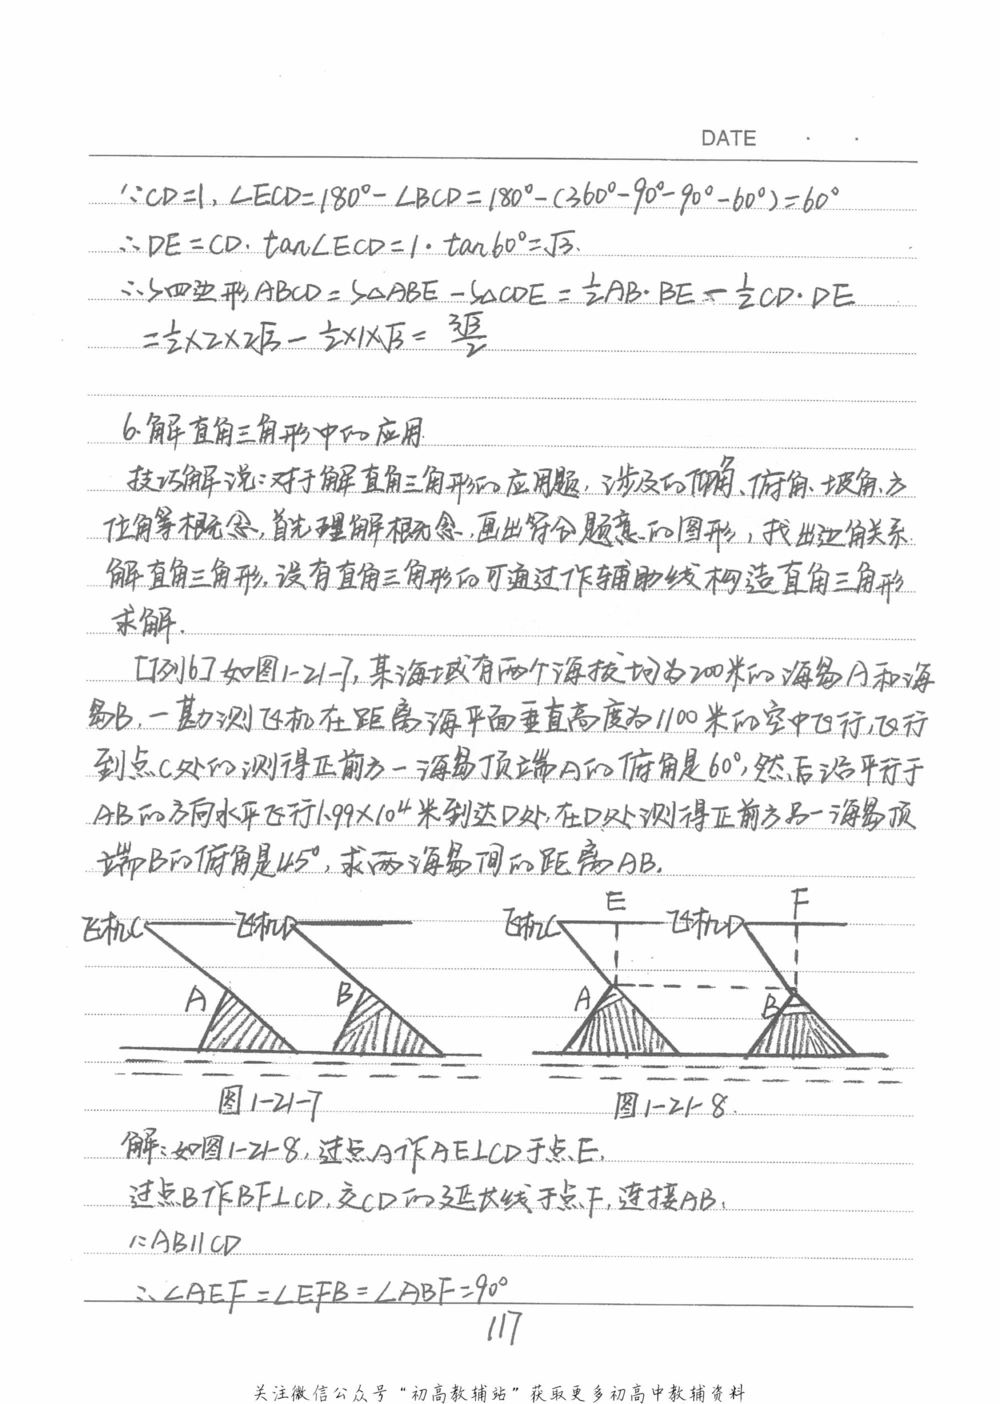 DATE · ·
∵CD=1,∠ECD=180°-∠BCD=180°-(360°-90°-90°-60°)=60°
∴DE=CD·tan∠ECD=1·tan60°=√3.
∴S四边形ABCD=S△ABE-S△CDE=½AB·BE-½CD·DE
=½×2×2√3-½×1×√3=3√3/2
6.解直角三角形中的应用.
技巧解说:对于解直角三角形的应用题,涉及的仰角、俯角、坡角、方
位角等概念,首先理解概念,画出符合题意的图形,找出边角关系
解直角三角形.没有直角三角形的可通过作辅助线构造直角三角形
求解.
[例6]如图1-21-7,某海域有两个海拔均为200米的海岛A和海
岛B,一勘测飞机在距离海平面垂直高度为1100米的空中飞行,飞行
到点C处的测得正前方一海岛顶端A的俯角是60°,然后沿平行于
AB的方向水平飞行1.99×10⁴米到达D处,在D处测得正前方另一海岛顶
端B的俯角是45°,求两海岛间的距离AB.
飞机C 飞机D
A B
图1-21-7
飞机C E 飞机D F
A B
图1-21-8.
解:如图1-21-8,过点A作AE⊥CD于点E,
过点B作BF⊥CD,交CD的延长线于点F,连接AB,
∵AB∥CD
∴∠AEF=∠EFB=∠ABF=90°
117
关注微信公众号“初高教辅站”获取更多初高中教辅资料